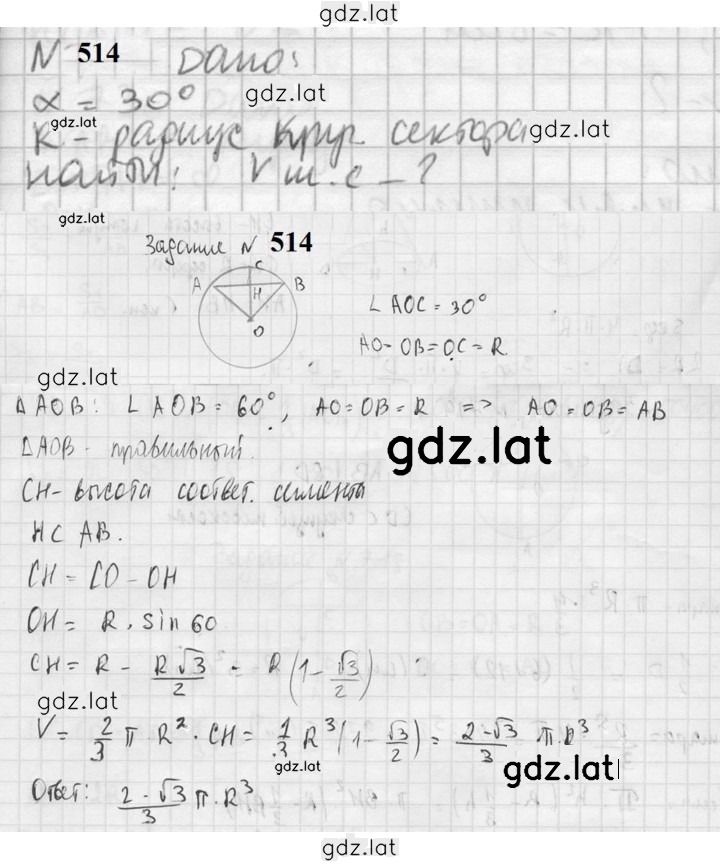 gdz.lat
N 514 Дано:
α = 30° gdz.lat
gdz.lat
R - радиус круг сектора gdz.lat
Найти: V ш.с - ?
gdz.lat
Задание N 514
C
A B
H
O
∠ AOC = 30°
AO = OB = OC = R
gdz.lat
ΔAOB: ∠ AOB = 60°, AO = OB = R => AO = OB = AB
ΔAOB - правильный. gdz.lat
CH - высота соответ. сегмента
H ⊂ AB.
CH = CO - OH
OH = R · sin 60
CH = R - R√3/2 = R(1 - √3/2)
gdz.lat
V = 2/3 π R² · CH = 1/3 R³(1 - √3/2) = 2-√3/3 π·R³
gdz.lat
gdz.lat
Ответ: 2-√3/3 π·R³
gdz.lat